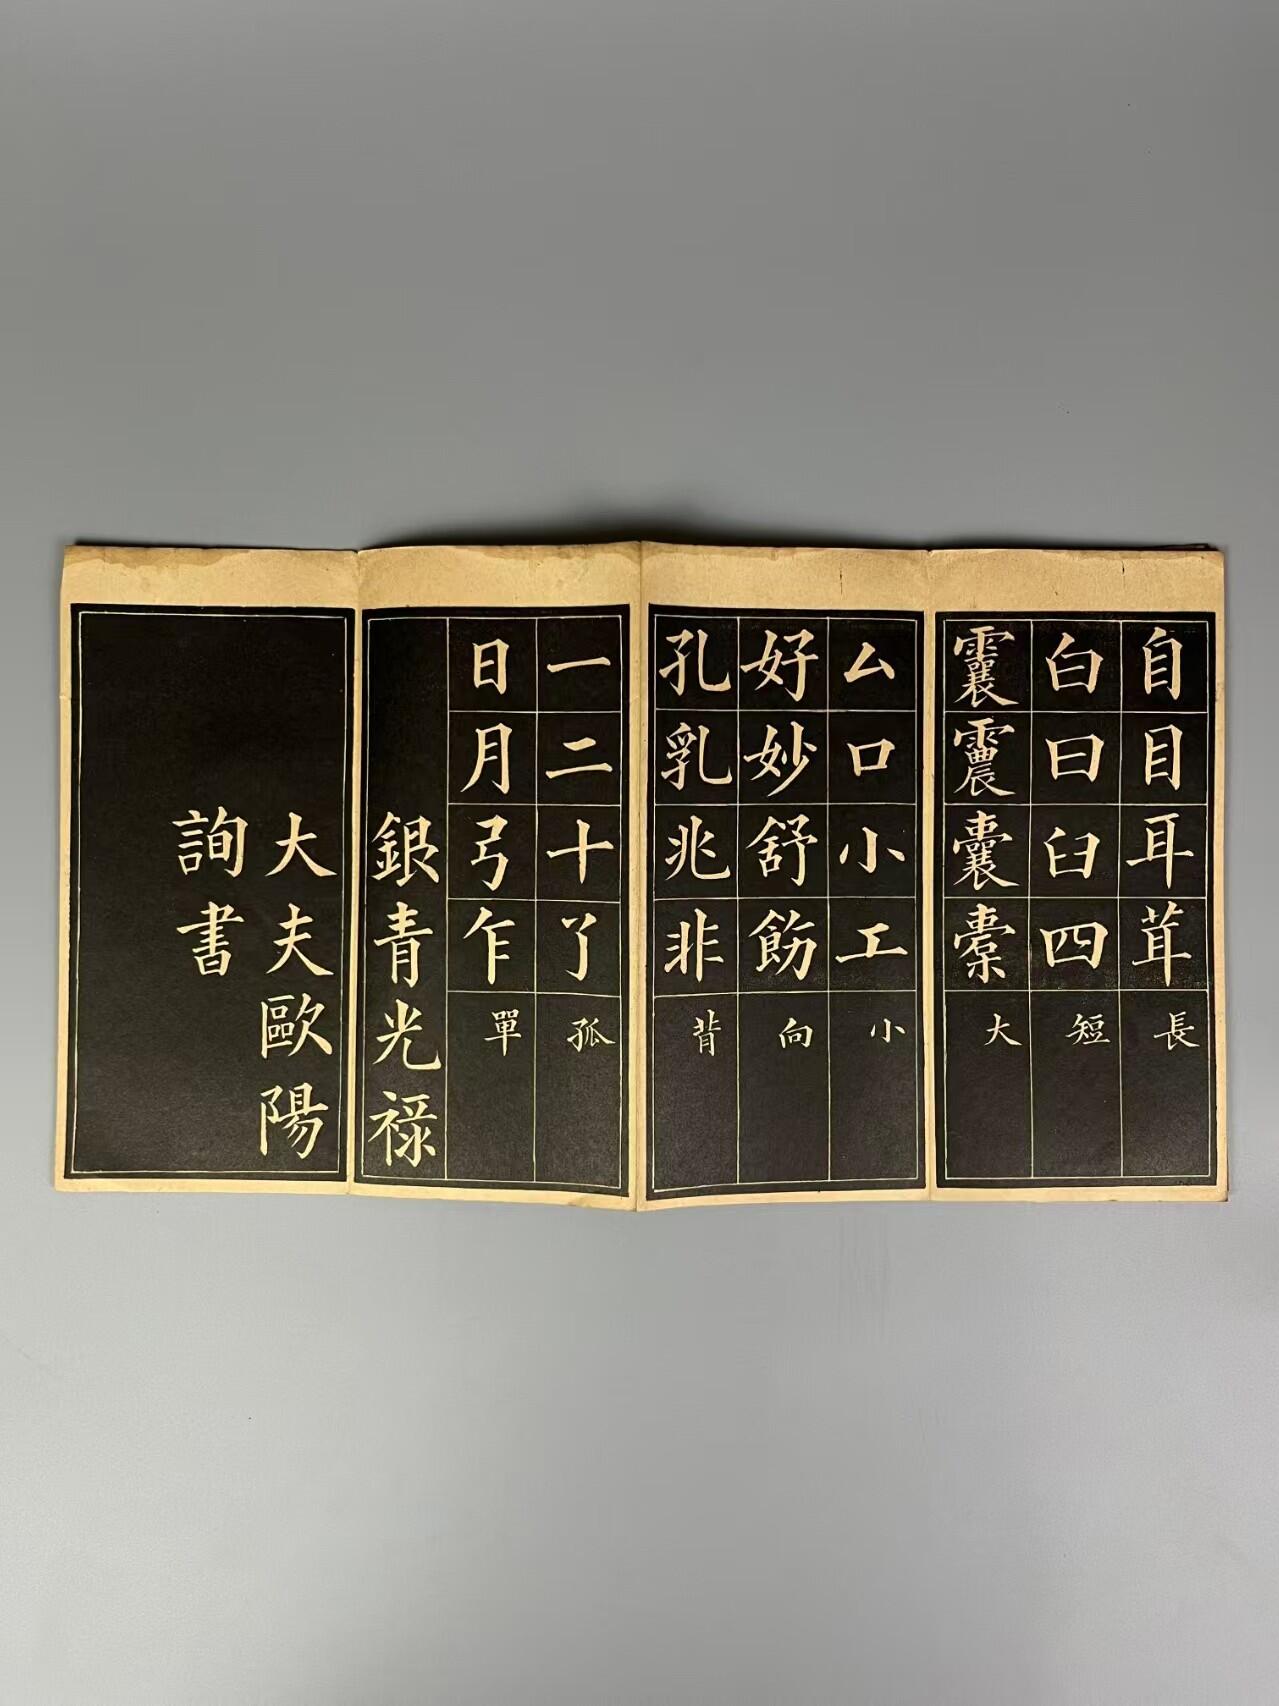 自目耳茸長
白曰臼四短
囊大
厶口小工小
好妙舒飭向
孔乳兆非背
一二十丫孤
日月弓乍單
銀青光祿
大夫歐陽
詢書